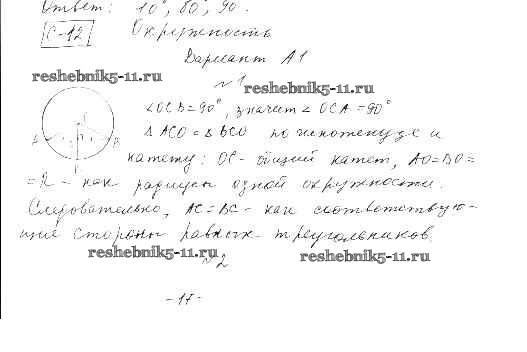 Ответ: 10°, 80°, 90°.
С-12 Окружность
Вариант А1
reshebnik5-11.ru
№1
reshebnik5-11.ru
∠OCB = 90°, значит ∠OCA = 90°
△ACO = △BCO по гипотенузе и
катету: OC - общий катет, AO = BO =
= R - как радиусы одной окружности.
Следовательно, AC = BC - как соответствую-
щие стороны равных треугольников.
reshebnik5-11.ru
№2
reshebnik5-11.ru
- 17 -